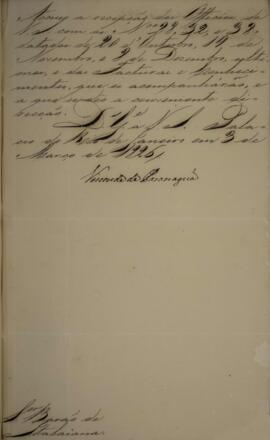 Accuso a recepção dos Officios de
V. S. com os Nos 29, 32, e 37,
datados de 20 de Outubro, 19 de
Novembro, e 2 de Dezembro, ultimos,
e das Facturas e Conhecimentos,
que os acompanhárão, e
a que se deo a conveniente direcção.
D. G. a V. S. Palacio
do Rio de Janeiro em 3 de
Março de 1826,
Visconde de Paranaguá
Snr Barão de
Itabaiana.